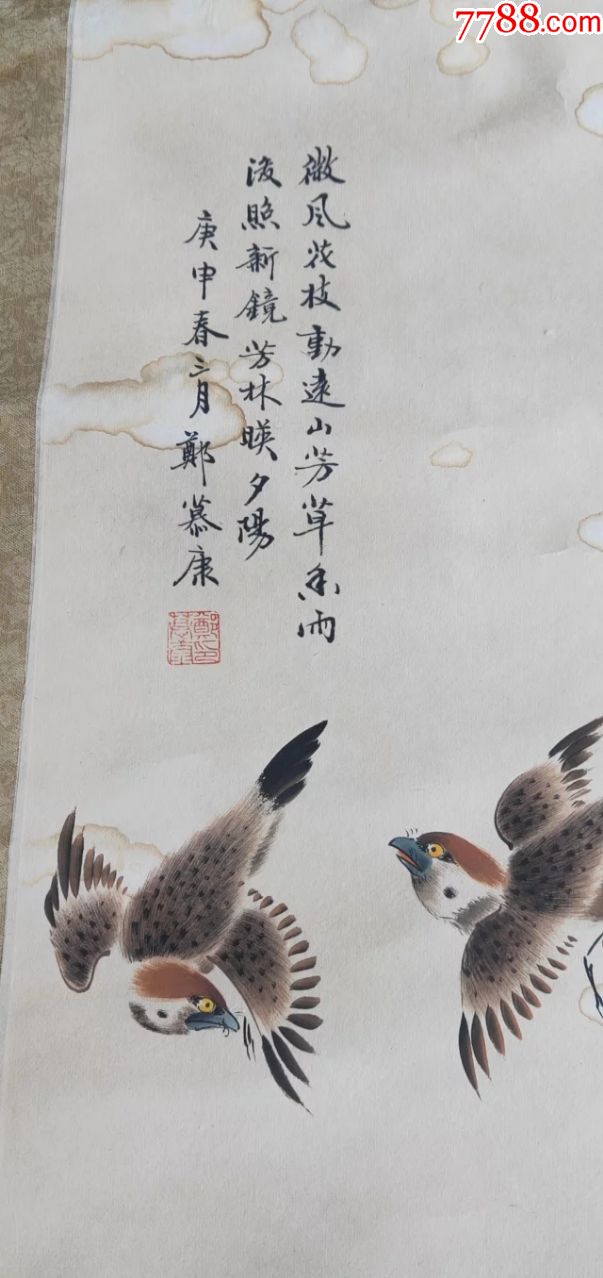 7788.com
微风花枝動遠山芳草香雨
後照新鏡芳林暎夕陽
庚申春三月鄭慕康